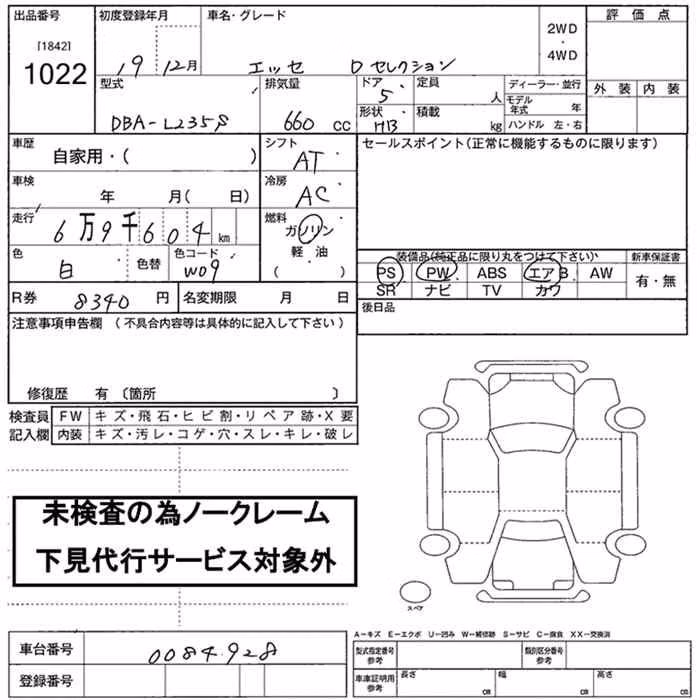 出品番号 初度登録年月 車名・グレード 評 価 点
[1842]
1022
19 12月 エッセ Dセレクション 2WD ・ 4WD
外 装 内 装
型式 排気量 ドア・ 定員 ディーラー・並行
5 人 モデル年式 年
DBA-L235S 660 cc 形状・ 積載
HB kg ハンドル 左・右
車歴 シフト セールスポイント(正常に機能するものに限ります)
自家用・( ) AT・
車検 冷房
年 月( 日) AC
走行 燃料
6万9千604 km ガソリン
軽・油
( )
色 色替 色コード
白 W09
装備品(純正品に限り丸をつけて下さい) 新車保証書
PS PW ABS エアB AW 有・無
SR ナビ TV カワ
R券 8340 円 名変期限 月 日 後日品
注意事項申告欄 (不具合内容等は具体的に記入して下さい)
修復歴 有 〔箇所 〕
検査員 FW キズ・飛石・ヒビ割・リペア跡・X要
記入欄 内装 キズ・汚レ・コゲ・穴・スレ・キレ・破レ
未検査の為ノークレーム
下見代行サービス対象外
スペア
A−キズ E−エクボ U−凹み W−補修跡 S−サビ C−腐食 XX−交換済
車台番号 0084928 型式指定番号 参考 類別区分番号 参考
登録番号 車庫証明用 参考 長さ cm 幅 cm 高さ cm